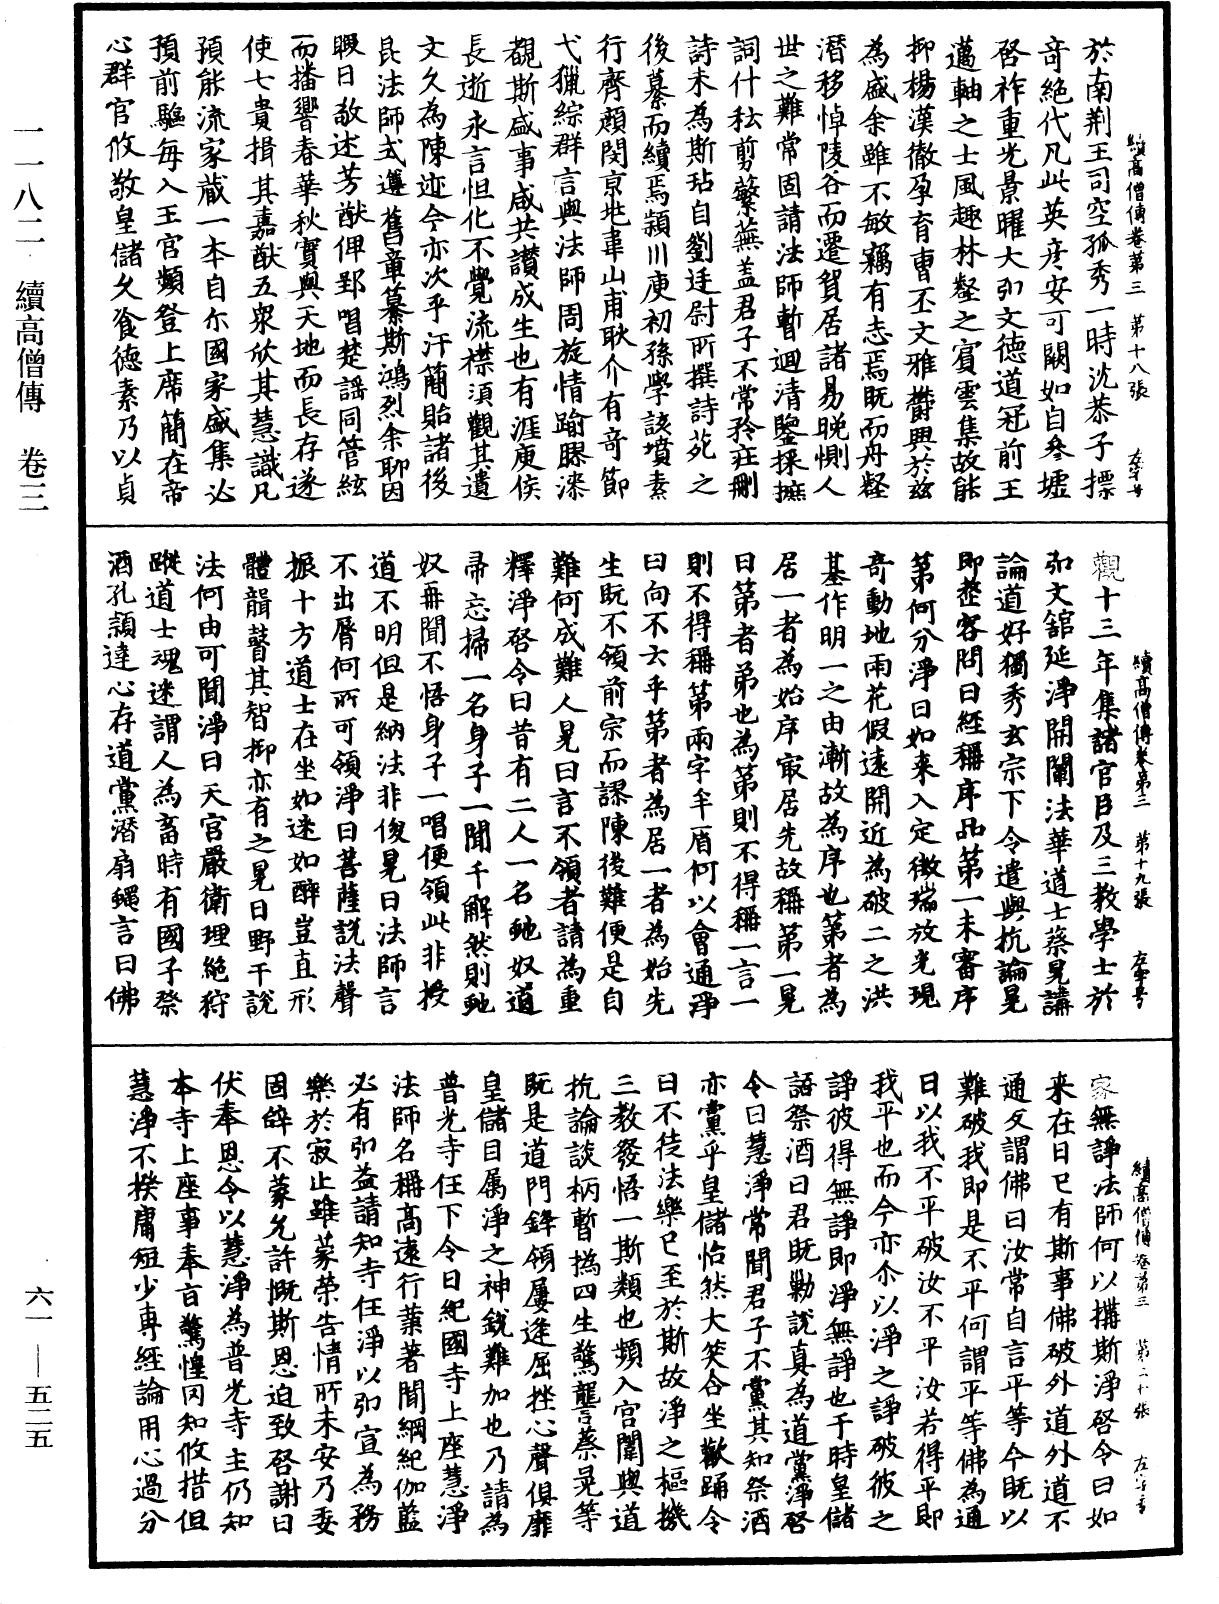 一一八二　續高僧傳　卷三
六一—五二五
續高僧傳卷第三　第十八張　左字号
於南荆王司空孤秀一時沈恭子摽
奇絕代凡此英彦安可闕如自叅墟
啓祚重光景曜大弘文德道冠前王
邁軸之士風趣林壑之賓雲集故能
抑揚漢徹孕育曹丕文雅欝興於兹
為盛余雖不敏竊有志焉既而舟壑
潛移悼陵谷而遷貿居諸易晚惻人
世之難常固請法師暫迴清鑒採摭
詞什耘剪繁蕪盖君子不常矜莊刪
詩未為斯玷自劉廷尉所撰詩苑之
後纂而續焉潁川庾初孫學該墳素
行齊顏閔京兆韋山甫耿介有奇節
弋獵綜群言與法師周旋情踰膠漆
覩斯盛事咸共讃成生也有涯庾侯
長逝永言怛化不覺流襟湏觀其遺
文久為陳迹今亦次乎汗簡貽諸後
昆法師式遵舊章纂斯鴻烈余聊因
暇日敬述芳猷俾郢唱楚謡同管絃
而播響春華秋實與天地而長存遂
使七貴揖其嘉猷五衆欣其慧識凡
預能流家藏一本自尒國家盛集必
預前驅每入王宮頻登上席簡在帝
心群官攸敬皇儲久飡德素乃以貞
續高僧傳卷第三　第十九張　左字号
觀十三年集諸官臣及三教學士於
弘文舘延淨開闡法華道士蔡晃講
論道好獨秀玄宗下令遣與抗論晃
即整容問曰經稱序品第一未審序
第何分淨曰如来入定徵瑞放光現
奇動地雨花假遠開近為破二之洪
基作明一之由漸故為序也第者為
居一者為始序寂居先故稱第一晃
曰第者弟也為弟則不得稱一言一
則不得稱第兩字牟盾何以會通淨
曰向不云乎第者為居一者為始先
生既不領前宗而謬陳後難便是自
難何成難人晃曰言不領者請為重
釋淨啓令曰昔有二人一名虵奴道
帚忘掃一名身子一聞千解然則虵
奴再聞不悟身子一唱便領此非授
道不明但是納法非俊晃曰法師言
不出脣何所可領淨曰菩薩説法聲
振十方道士在坐如迷如醉豈直形
體聾瞽其智抑亦有之晃曰野干說
法何由可聞淨曰天宮嚴衛理絶狩
蹤道士魂迷謂人為畜時有國子祭
酒孔穎達心存道黨潛扇蠅言曰佛
續高僧傳卷第三　第二十張　左字号
家無諍法師何以搆斯淨啓令曰如
来在日已有斯事佛破外道外道不
通反謂佛曰汝常自言平等今既以
難破我即是不平何謂平等佛為通
曰以我不平破汝不平汝若得平即
我平也而今亦尒以淨之諍破彼之
諍彼得無諍即淨無諍也于時皇儲
語祭酒曰君既勦説真為道黨淨啓
令曰慧淨常聞君子不黨其知祭酒
亦黨乎皇儲怡然大笑合坐歡踊令
曰不徒法樂已至於斯故淨之樞機
三教發悟一斯類也頻入宮闈與道
抗論談柄暫撝四生驚聾言蔡晃等
既是道門鋒領屢逢屈挫心聲俱靡
皇儲目属淨之神銳難加也乃請為
普光寺任下令曰紀國寺上座慧淨
法師名稱高遠行業著聞綱紀伽藍
必有弘益請知寺任淨以弘宣為務
樂於寂止雖蒙榮告情所未安乃委
固辭不蒙允許慨斯恩迫致啓謝曰
伏奉恩令以慧淨為普光寺主仍知
本寺上座事奉旨驚惶罔知攸措但
慧淨不揆庸短少專經論用心過分